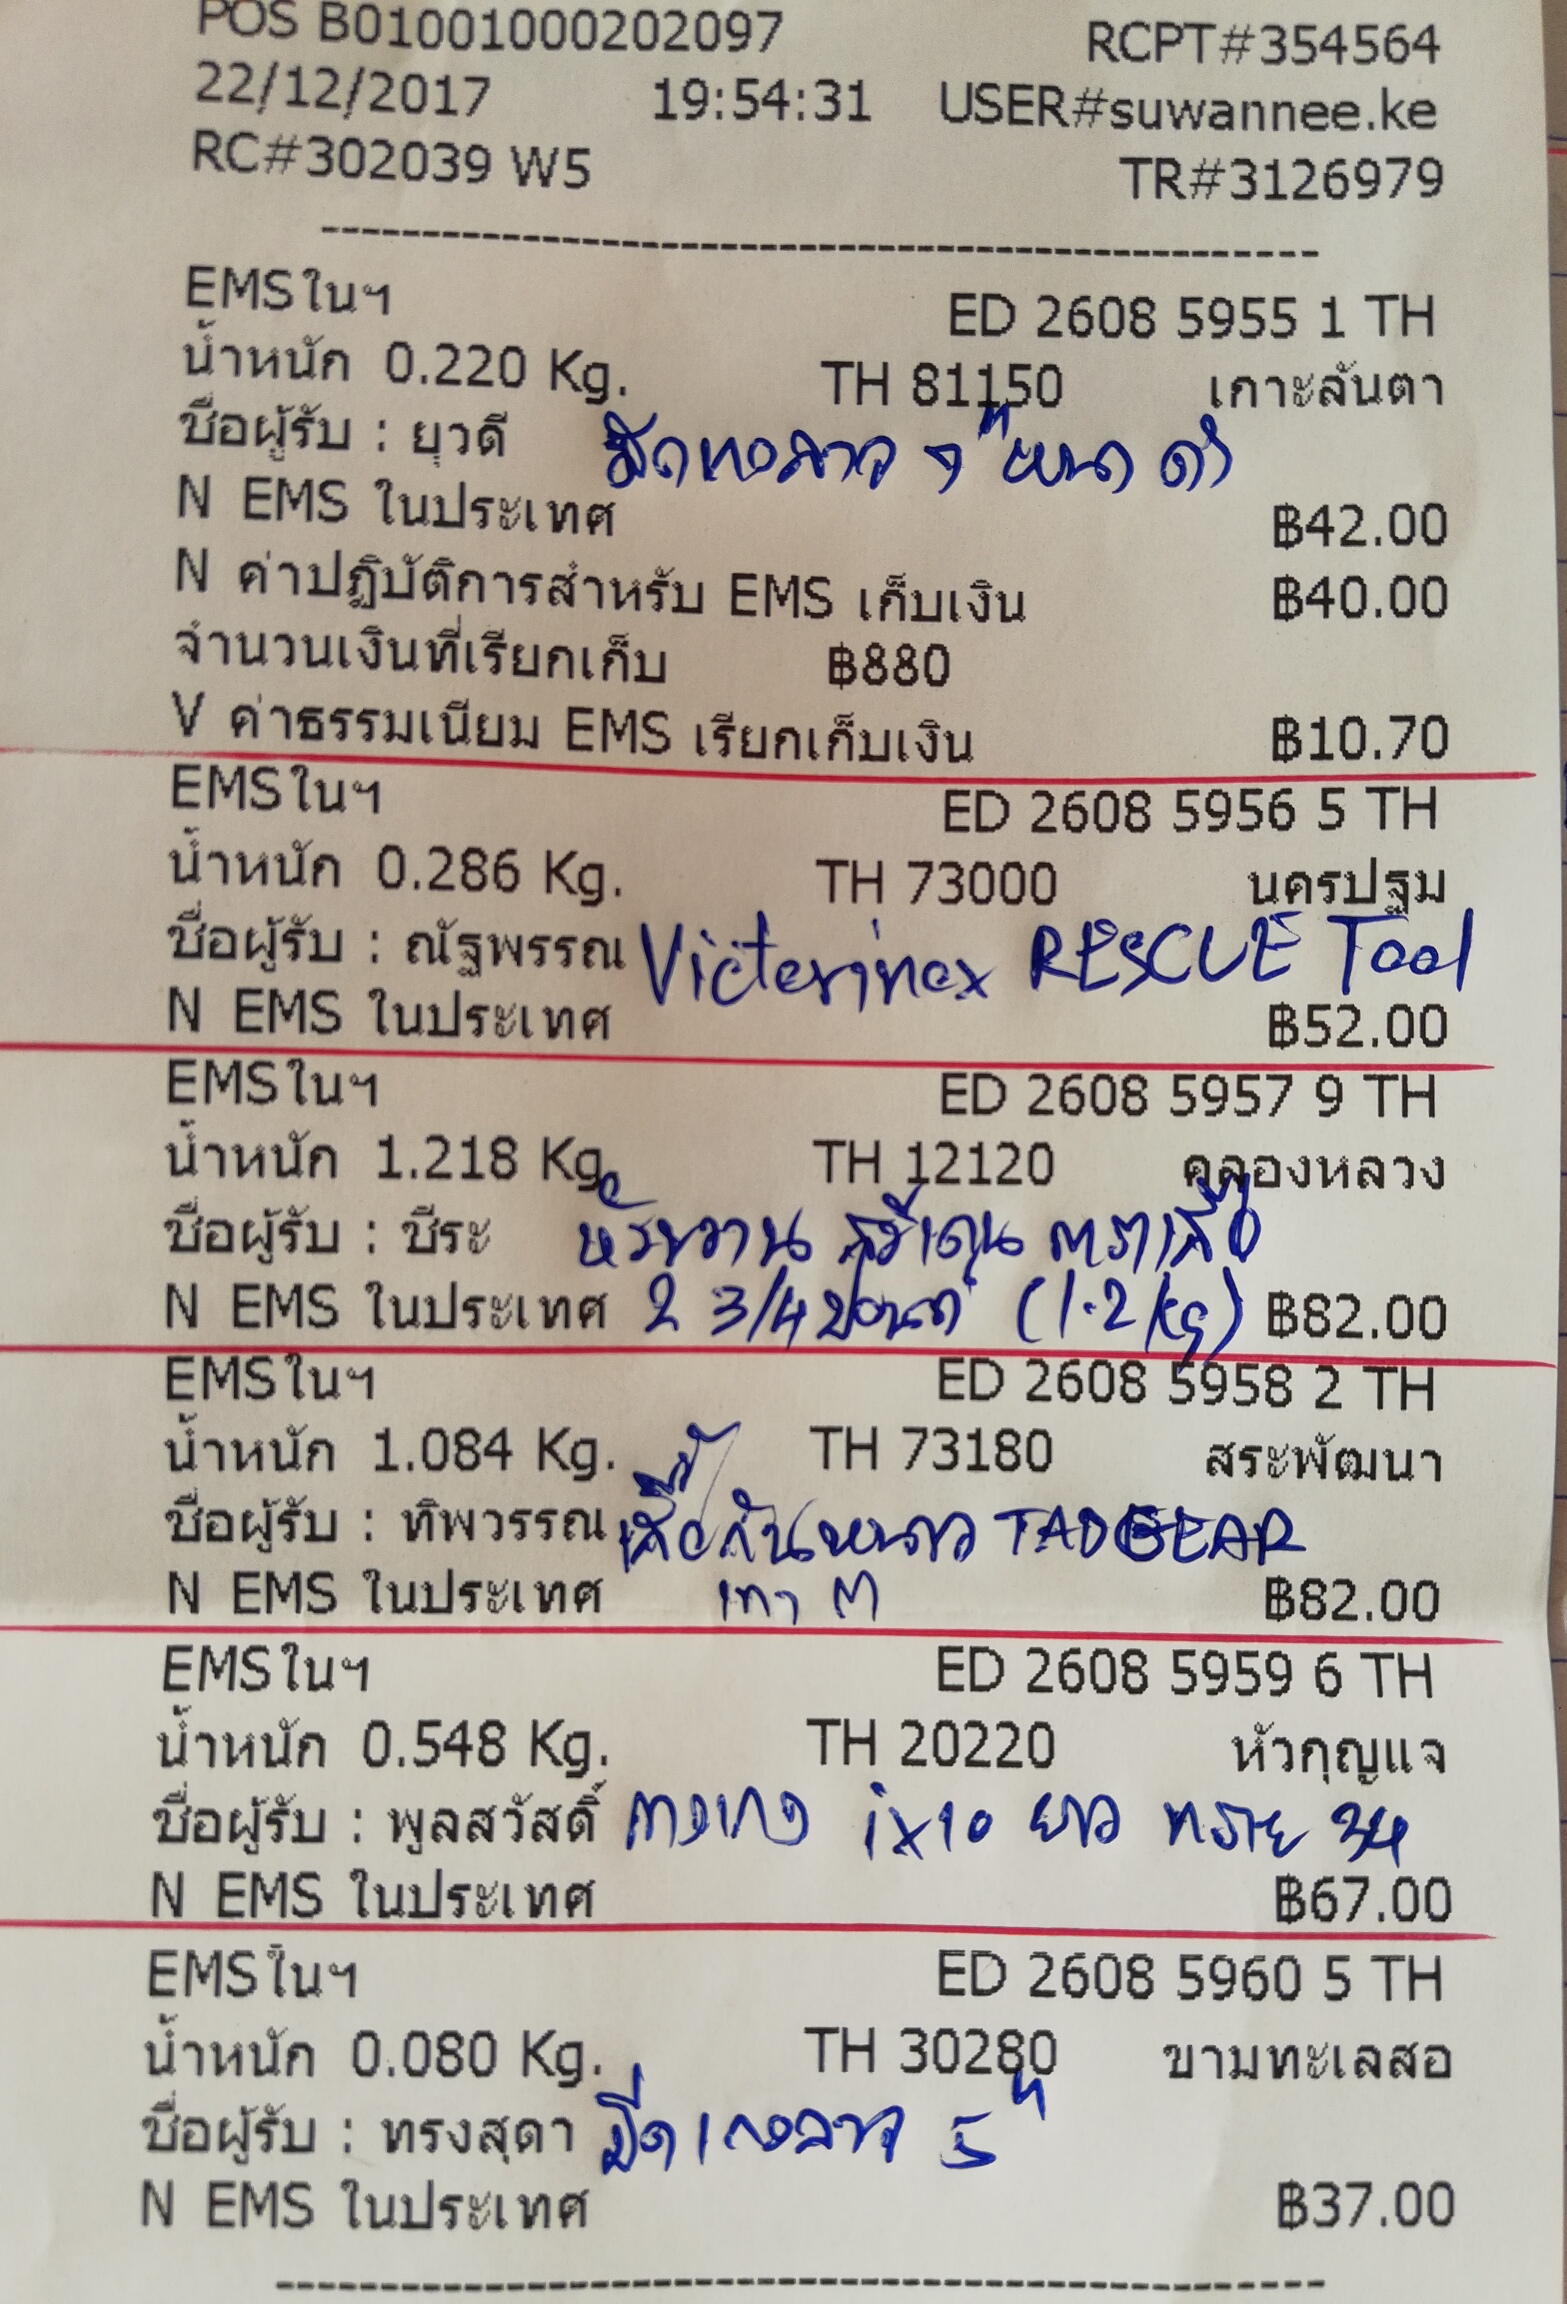 POS B01001000202097 RCPT#354564
22/12/2017 19:54:31 USER#suwannee.ke
RC#302039 W5 TR#3126979
EMSในฯ ED 2608 5955 1 TH
น้ำหนัก 0.220 Kg. TH 81150 เกาะลันตา
ชื่อผู้รับ : ยุวดี
N EMS ในประเทศ ฿42.00
N ค่าปฏิบัติการสำหรับ EMS เก็บเงิน ฿40.00
จำนวนเงินที่เรียกเก็บ ฿880
V ค่าธรรมเนียม EMS เรียกเก็บเงิน ฿10.70
EMSในฯ ED 2608 5956 5 TH
น้ำหนัก 0.286 Kg. TH 73000 นครปฐม
ชื่อผู้รับ : ณัฐพรรณ Victorinox RESCUE Tool
N EMS ในประเทศ ฿52.00
EMSในฯ ED 2608 5957 9 TH
น้ำหนัก 1.218 Kg. TH 12120 คลองหลวง
ชื่อผู้รับ : ชีระ หัวขวาน
N EMS ในประเทศ 2 3/4 ปอนด์ (1.2 kg) ฿82.00
EMSในฯ ED 2608 5958 2 TH
น้ำหนัก 1.084 Kg. TH 73180 สระพัฒนา
ชื่อผู้รับ : ทิพวรรณ เสื้อกันหนาว TAD GEAR
N EMS ในประเทศ เทา M ฿82.00
EMSในฯ ED 2608 5959 6 TH
น้ำหนัก 0.548 Kg. TH 20220 หัวกุญแจ
ชื่อผู้รับ : พูลสวัสดิ์ กางเกง ix10 ยาว ทราย 34
N EMS ในประเทศ ฿67.00
EMSในฯ ED 2608 5960 5 TH
น้ำหนัก 0.080 Kg. TH 30280 ขามทะเลสอ
ชื่อผู้รับ : ทรงสุดา มีด 5"
N EMS ในประเทศ ฿37.00